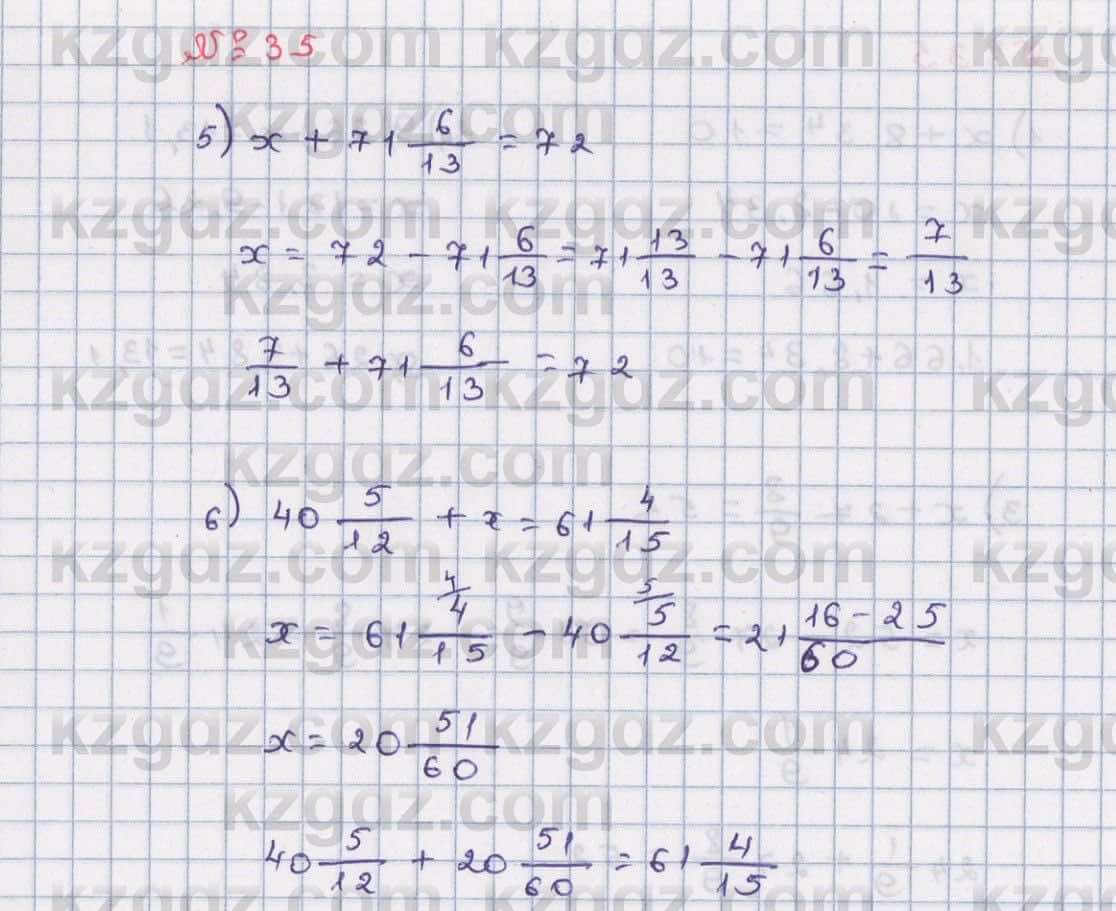 № 35
5) x + 71 6/13 = 72
x = 72 - 71 6/13 = 71 13/13 - 71 6/13 = 7/13
7/13 + 71 6/13 = 72
6) 40 5/12 + x = 61 4/15
x = 61 4/15 (4/ - 40 5/12 (5/ = 21 (16 - 25)/60
x = 20 51/60
40 5/12 + 20 51/60 = 61 4/15
kzgdz.com